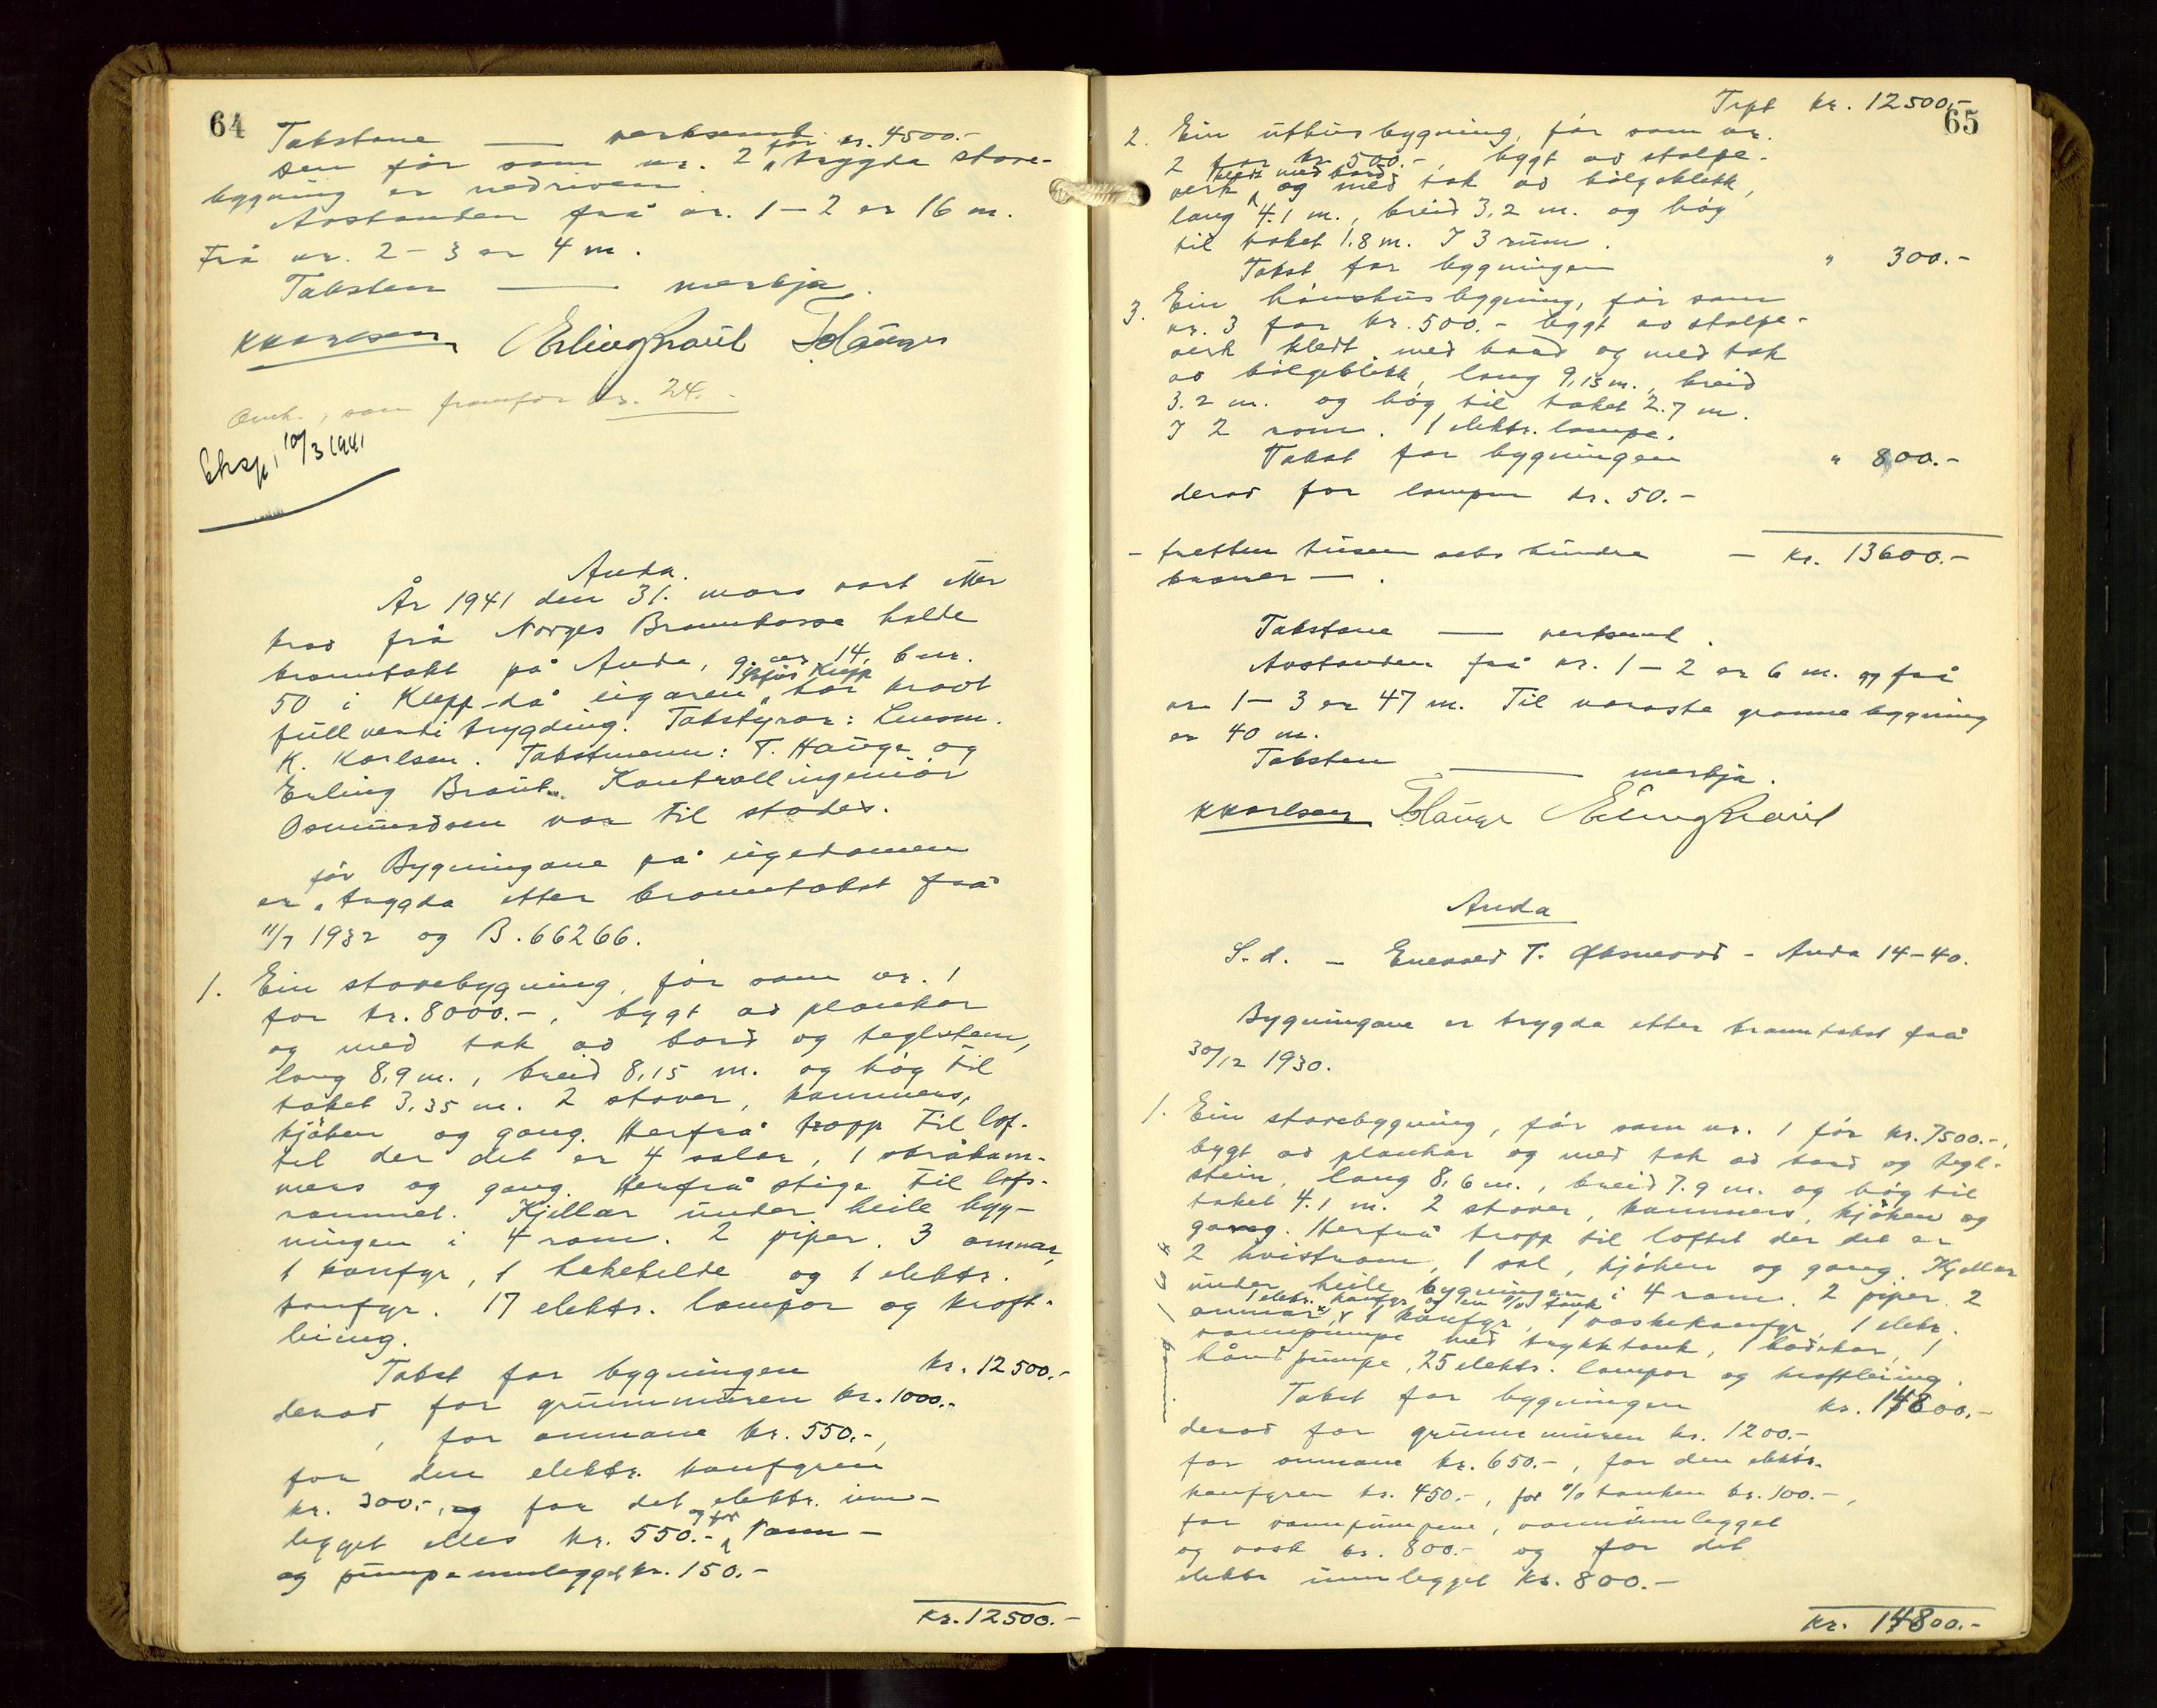 64
Takstane — verksemt.
Den før som nr. 2 for kr. 4500.- trygda stove-
bygning er nedriven.
Avstanden frå nr. 1 – 2 er 16 m.
Frå nr. 2 – 3 er 4 m.
Taksten — merkja.
K Karlsen Erling Braut T Hauge
Anh., som framfor nr. 24.
Eksp. 10/3 1941
Anda.
År 1941 den 31. mars vart etter
krav frå Norges Brannkasse halde
branntakst på Anda, g.nr. 14, b.nr.
50 i Klepp då eigaren har kravt
full verdi trygding. Takstyrar: Lensm.
K. Karlsen. Takstmenn: T. Hauge og
Erling Braut. Kontrollingeniør
Osmundsen var til stades.
Bygningane på eigedomen
er før trygda etter branntakst frå
11/7 1932 og B. 66266.
1. Ein stovebygning, før som nr. 1
for kr. 8000.-, bygt av plankar
og med tak av bord og teglstein,
lang 8,9 m., breid 8,15 m. og høg til
taket 3,35 m. 2 stover, kammers,
kjøken og gang. Herfrå tropp til lof-
tet der det er 4 salar, 1 skråkam-
mers og gang. Herfrå stige til lofs-
rommet. Kjellar under heile byg-
ningen i 4 rom. 2 piper. 3 omnar,
1 komfyr, 1 kokekjelde og 1 elektr.
komfyr. 17 elektr. lampor og kraft-
leiing.
Takst for bygningen kr. 12500.-
derav for grunnmuren kr. 1000.-
, for omnane kr. 550.-,
for den elektr. komfyren
kr. 300.-, og for det elektr. inn-
legget elles kr. 550.- og for vann-
og pumpeinnlegget kr. 150.-
kr. 12500.-
65
Trpt kr. 12500.-
2. Ein uthusbygning, før som nr.
2 for kr. 500.-, bygt av stolpe-
verk kledt med bord og med tak av bølgeblekk,
lang 4.1 m., breid 3,2 m. og høg
til taket 1.8 m. I 3 rum.
Takst for bygningen " 300.-
3. Ein hønsehusbygning, før som
nr. 3 for kr. 500.- bygt av stolpe-
verk kledt med bord og med tak
av bølgeblekk, lang 9,15 m., breid
3.2 m. og høg til taket 2.7 m.
I 2 rom. 1 elektr. lampe.
Takst for bygningen " 800.-
derav for lampen kr. 50.-
– tretten tusen seks hundre – kr. 13600.-
kroner –.
Takstane — verksemt.
Avstanden frå nr. 1 – 2 er 6 m. og frå
nr 1 – 3 er 47 m. Til næraste grannebygning
er 40 m.
Taksten — merkja.
K Karlsen T Hauge Erling Braut
Anda
S. d. – Enevald T. Øksnevad – Anda 14–40.
Bygningane er trygda etter branntakst frå
30/12 1930.
1. Ein stovebygning, før som nr. 1 før kr. 7500.-,
bygt av plankar og med tak av bord og tegl-
stein, lang 8,6 m., breid 7.9 m. og høg til
taket 4.1 m. 2 stover, kammers, kjøken og
gang. Herfrå tropp til loftet der det er
2 kvistrom, 1 sal, kjøken og gang. Kjellar
under heile bygningen i 4 rom. 2 piper. 2
omnar, 1 elektr. komfyr og en o/v tank 1 komfyr, 1 vaskekomfyr, 1 elektr.
vannpumpe med trykktank, 1 badekar, 1
håndpumpe, 25 elektr. lampor og kraftleiing.
Takst for bygningen kr. 14800.-
derav for grunnmuren kr. 1200.-,
for omnane kr. 650.-, for den elektr.
komfyren kr. 450.-, for o/v tanken kr. 100.-,
for vannpumpene, vanninnlegget
og vask kr. 800.- og for det
elektr innlegget kr. 800.-
kr. 14800.-